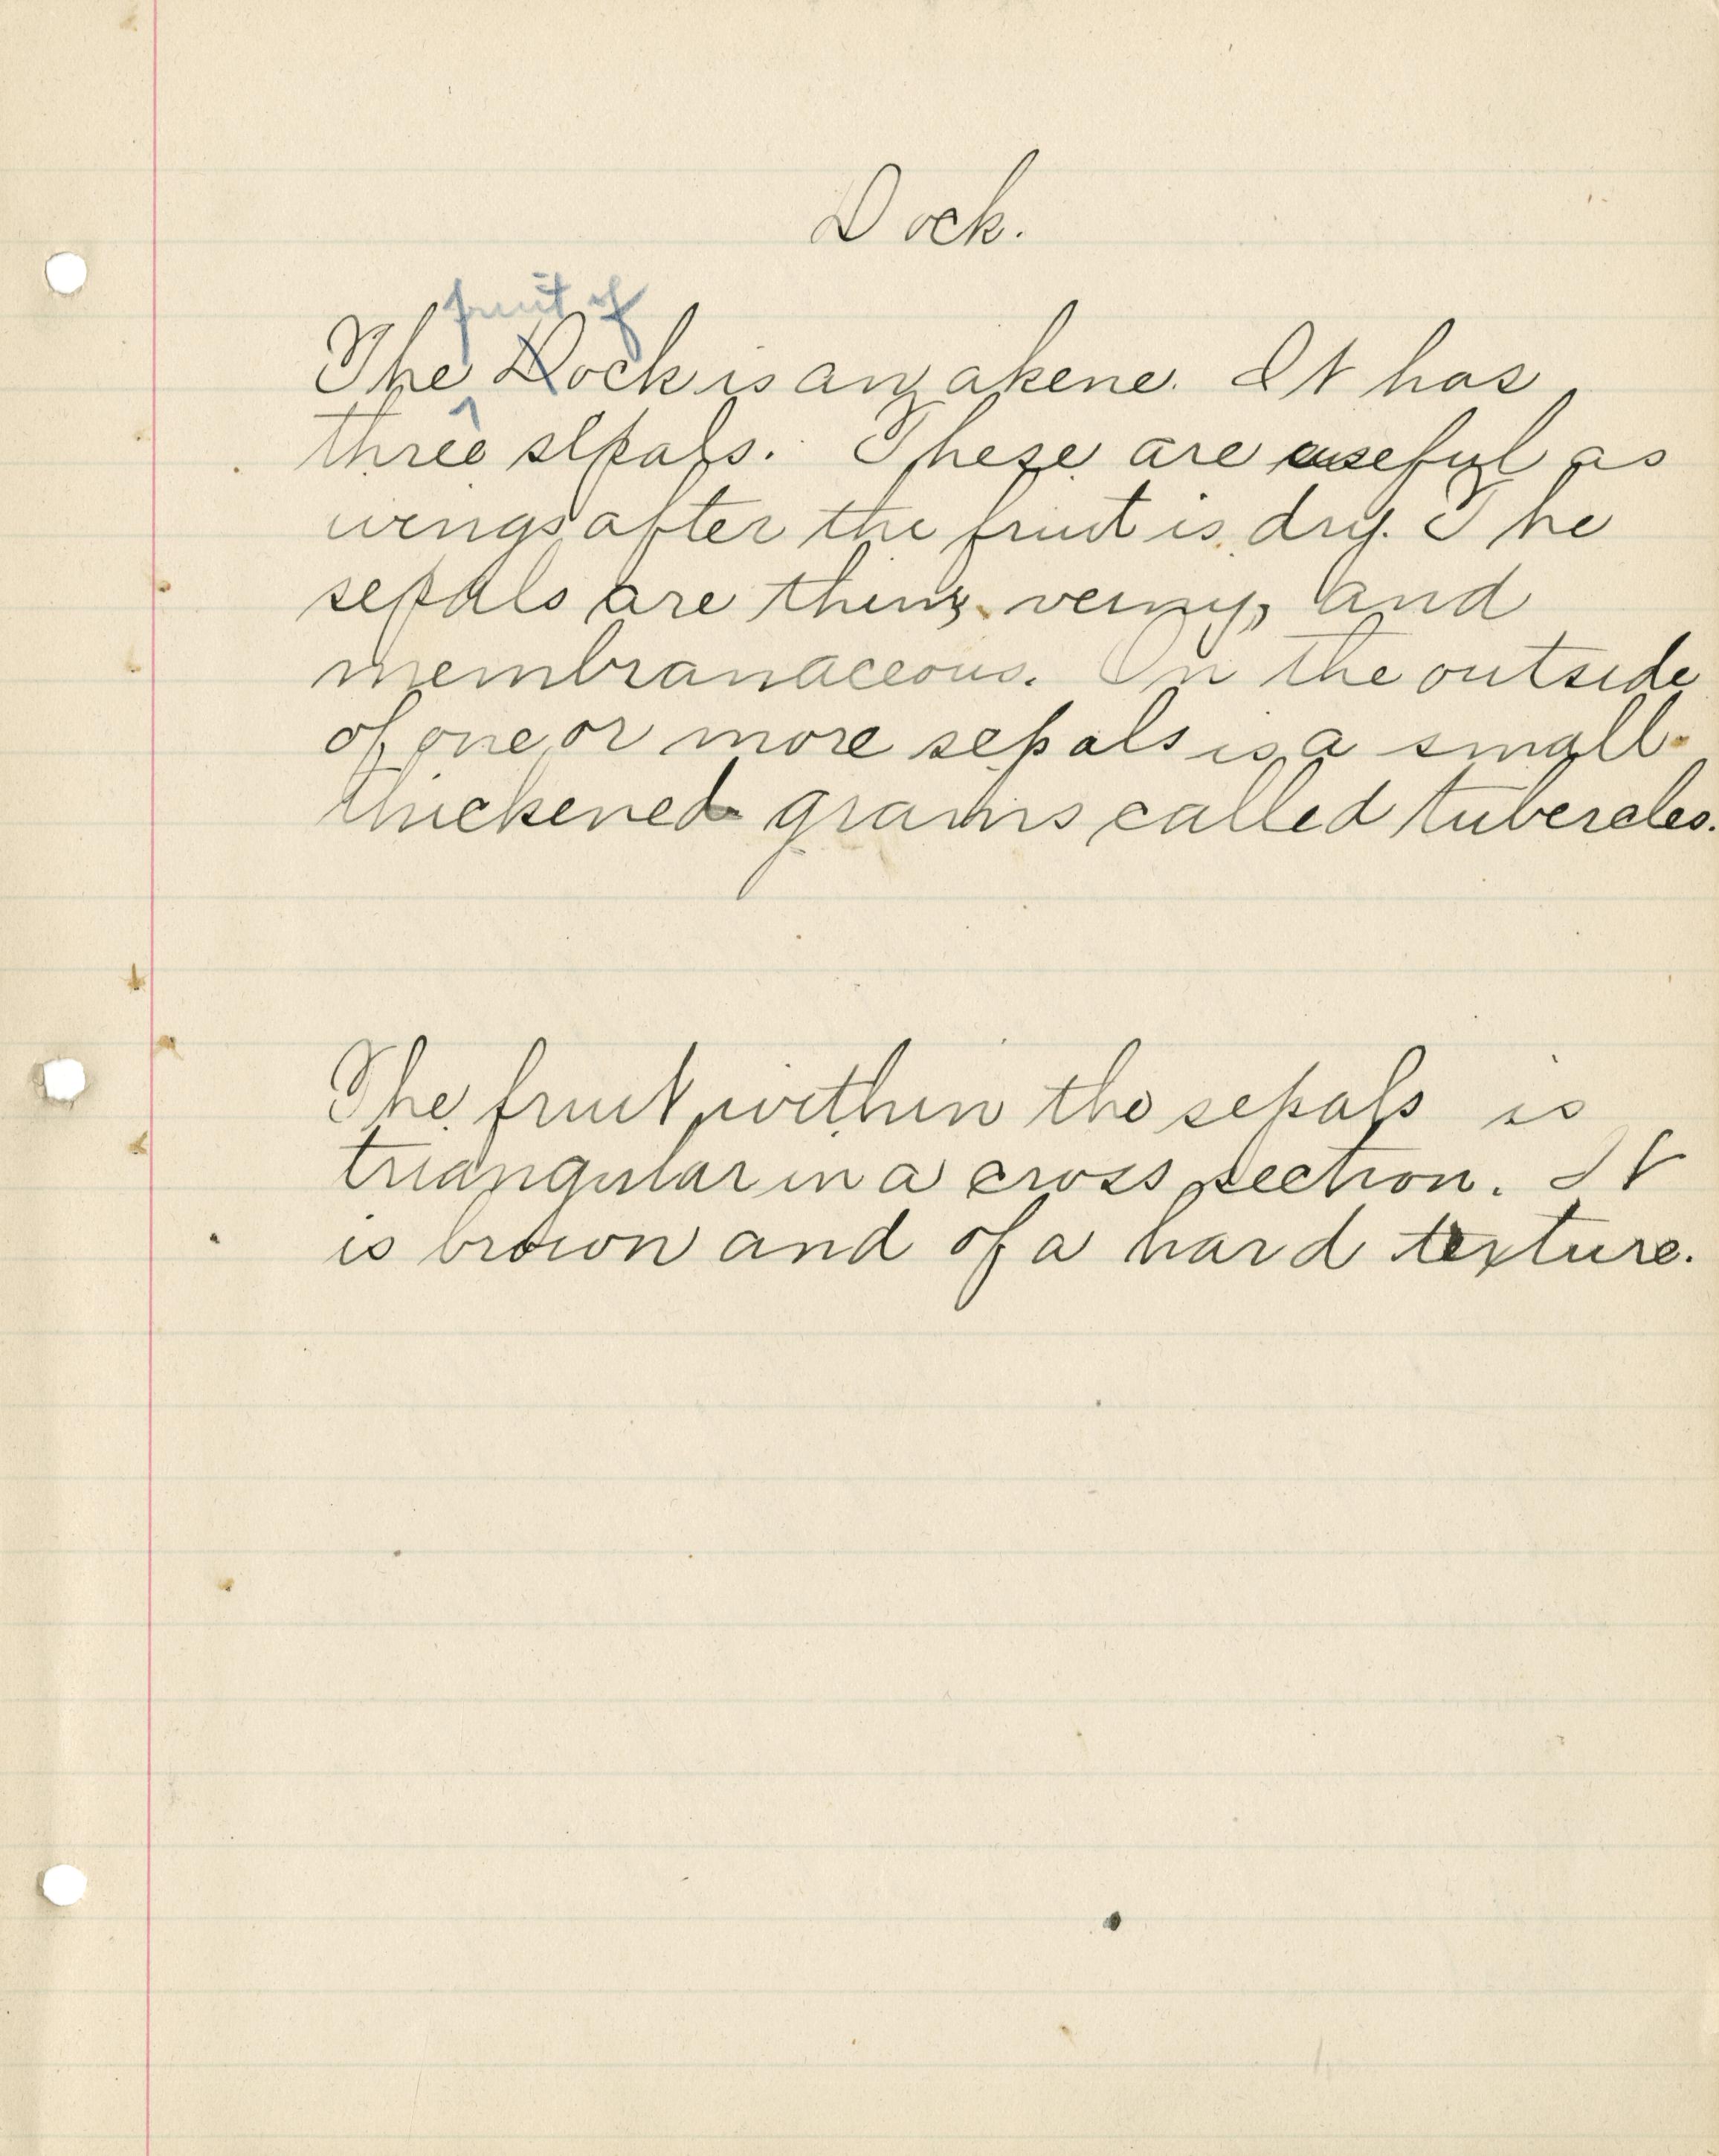 Dock.
fruit of
The Dock is an akene. It has
three sepals. These are useful as
wings after the fruit is dry. The
sepals are thin, veiny, and
membranaceous. On the outside
of one or more sepals is a small
thickened grains called tubercles.
The fruit within the sepals is
triangular in a cross section. It
is brown and of a hard texture.